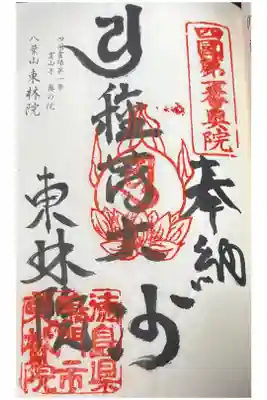 四国第一番奥院
奉納
種蒔大師
四国霊場第一番
霊山寺 奥の院
八葉山 東林院
東林院
徳島県
鳴門市
東林院